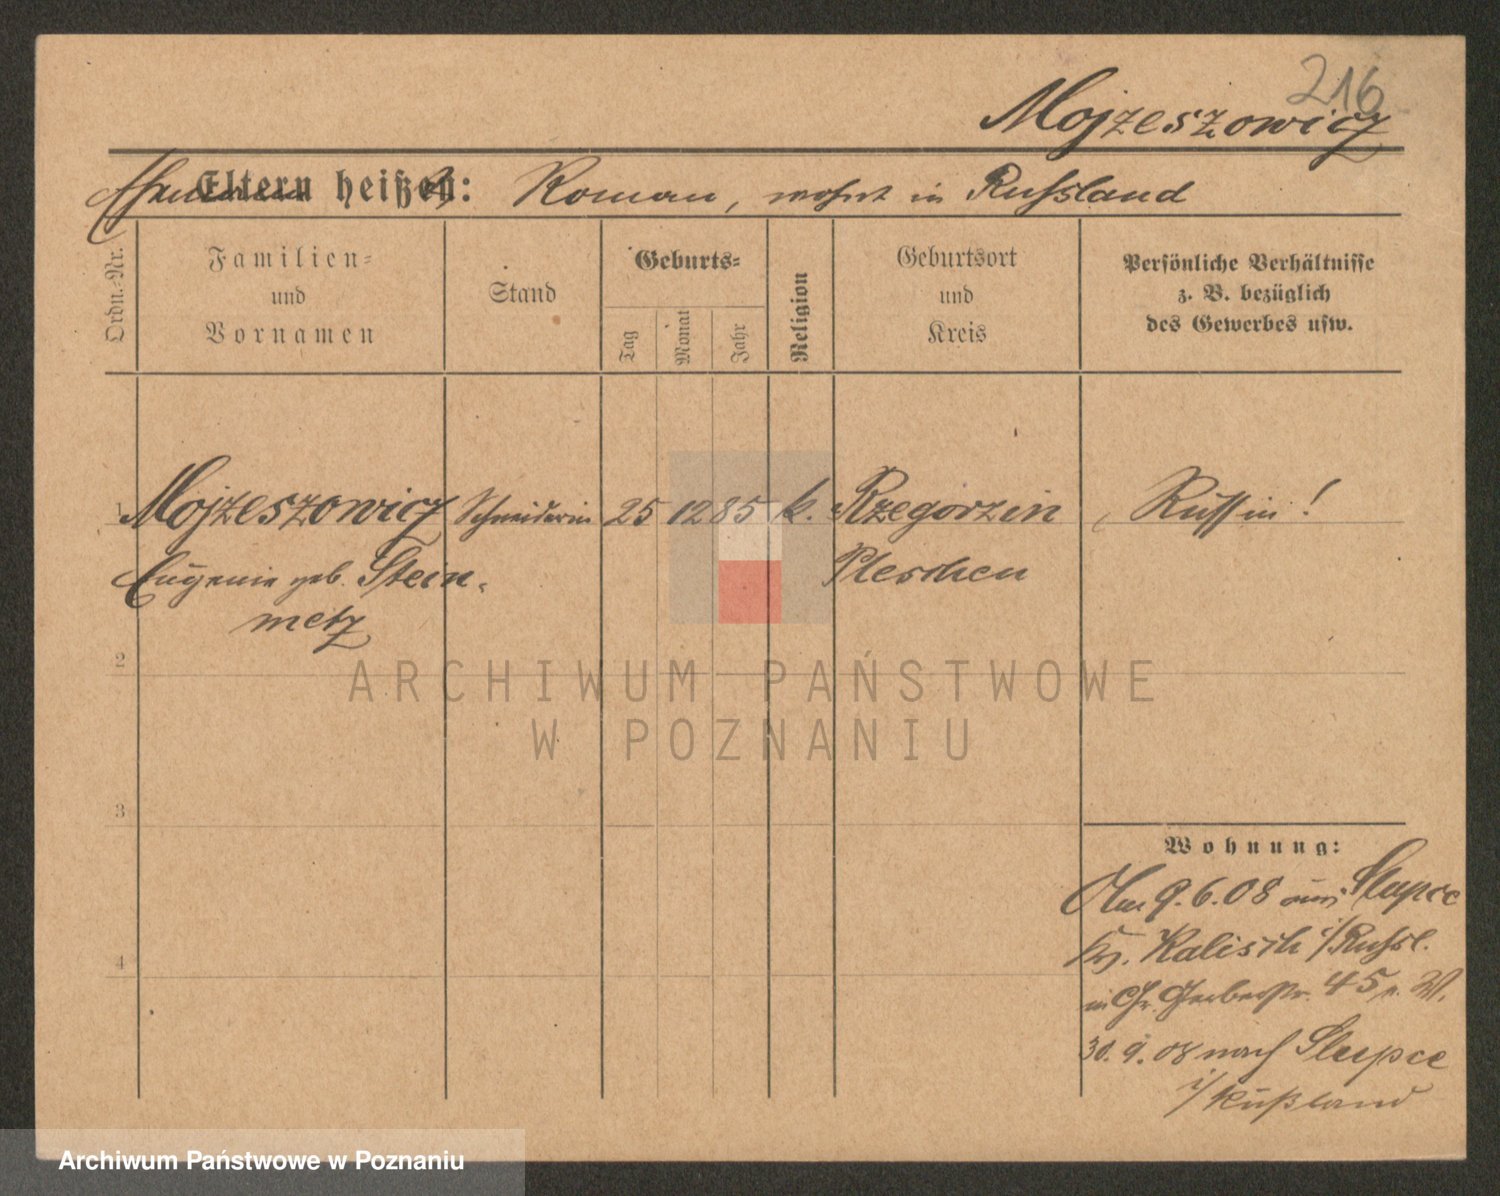 216
Mojzeszowicz
Ehemann
Eltern heißen: Roman, wohnt in Russland
Ordn.-Nr.
Familien-
und
Vornamen
Stand
Geburts-
Tag
Monat
Jahr
Religion
Geburtsort
und
Kreis
Persönliche Verhältnisse
z. B. bezüglich
des Gewerbes usw.
1 Mojzeszowicz Schneiderin 25 12 85 k. Rzegorzin Russin!
Eugenie geb. Stein- Pleschen
metz
2
ARCHIWUM PAŃSTWOWE
W POZNANIU
3
Wohnung:
9.6.08 aus Slupce
Kr. Kalisch i/Russl.
in Gr. Gerberstr. 45 b. W.
4
30.9.08 nach Slupce
i/Rußland
Archiwum Państwowe w Poznaniu